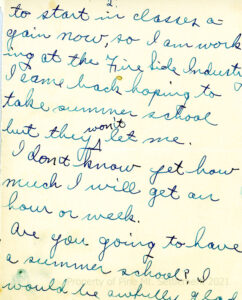 2
to start in classes a-
gain now, so I am work
ing at the Fireside Industry
I came back hoping to
take summer school
but they won't let me.
I don't know yet how
much I will get an
hour or week.
Are you going to have
a summer school? I
would be awfully glad